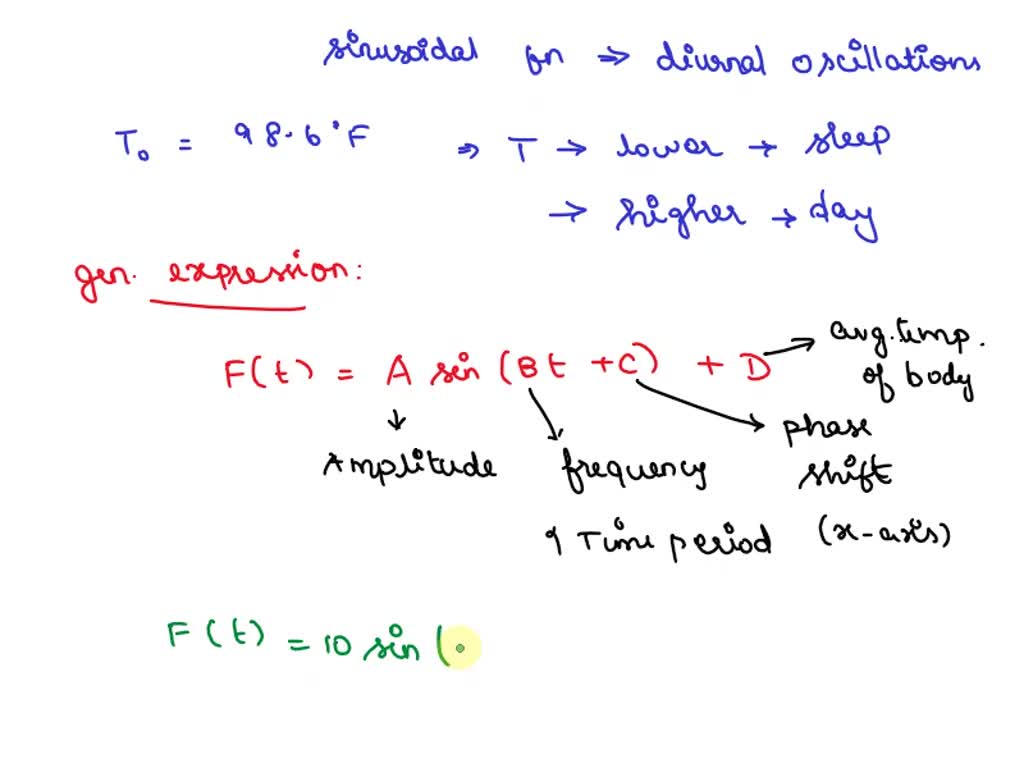 sinusoidal fn ⇒ diurnal oscillations
T₀ = 98.6°F ⇒ T → lower → sleep
→ higher → day
gen. expression:
F(t) = A sin (Bt + C) + D → avg. temp. of body
Amplitude frequency phase shift
& Time period (x-axis)
F(t) = 10 sin (